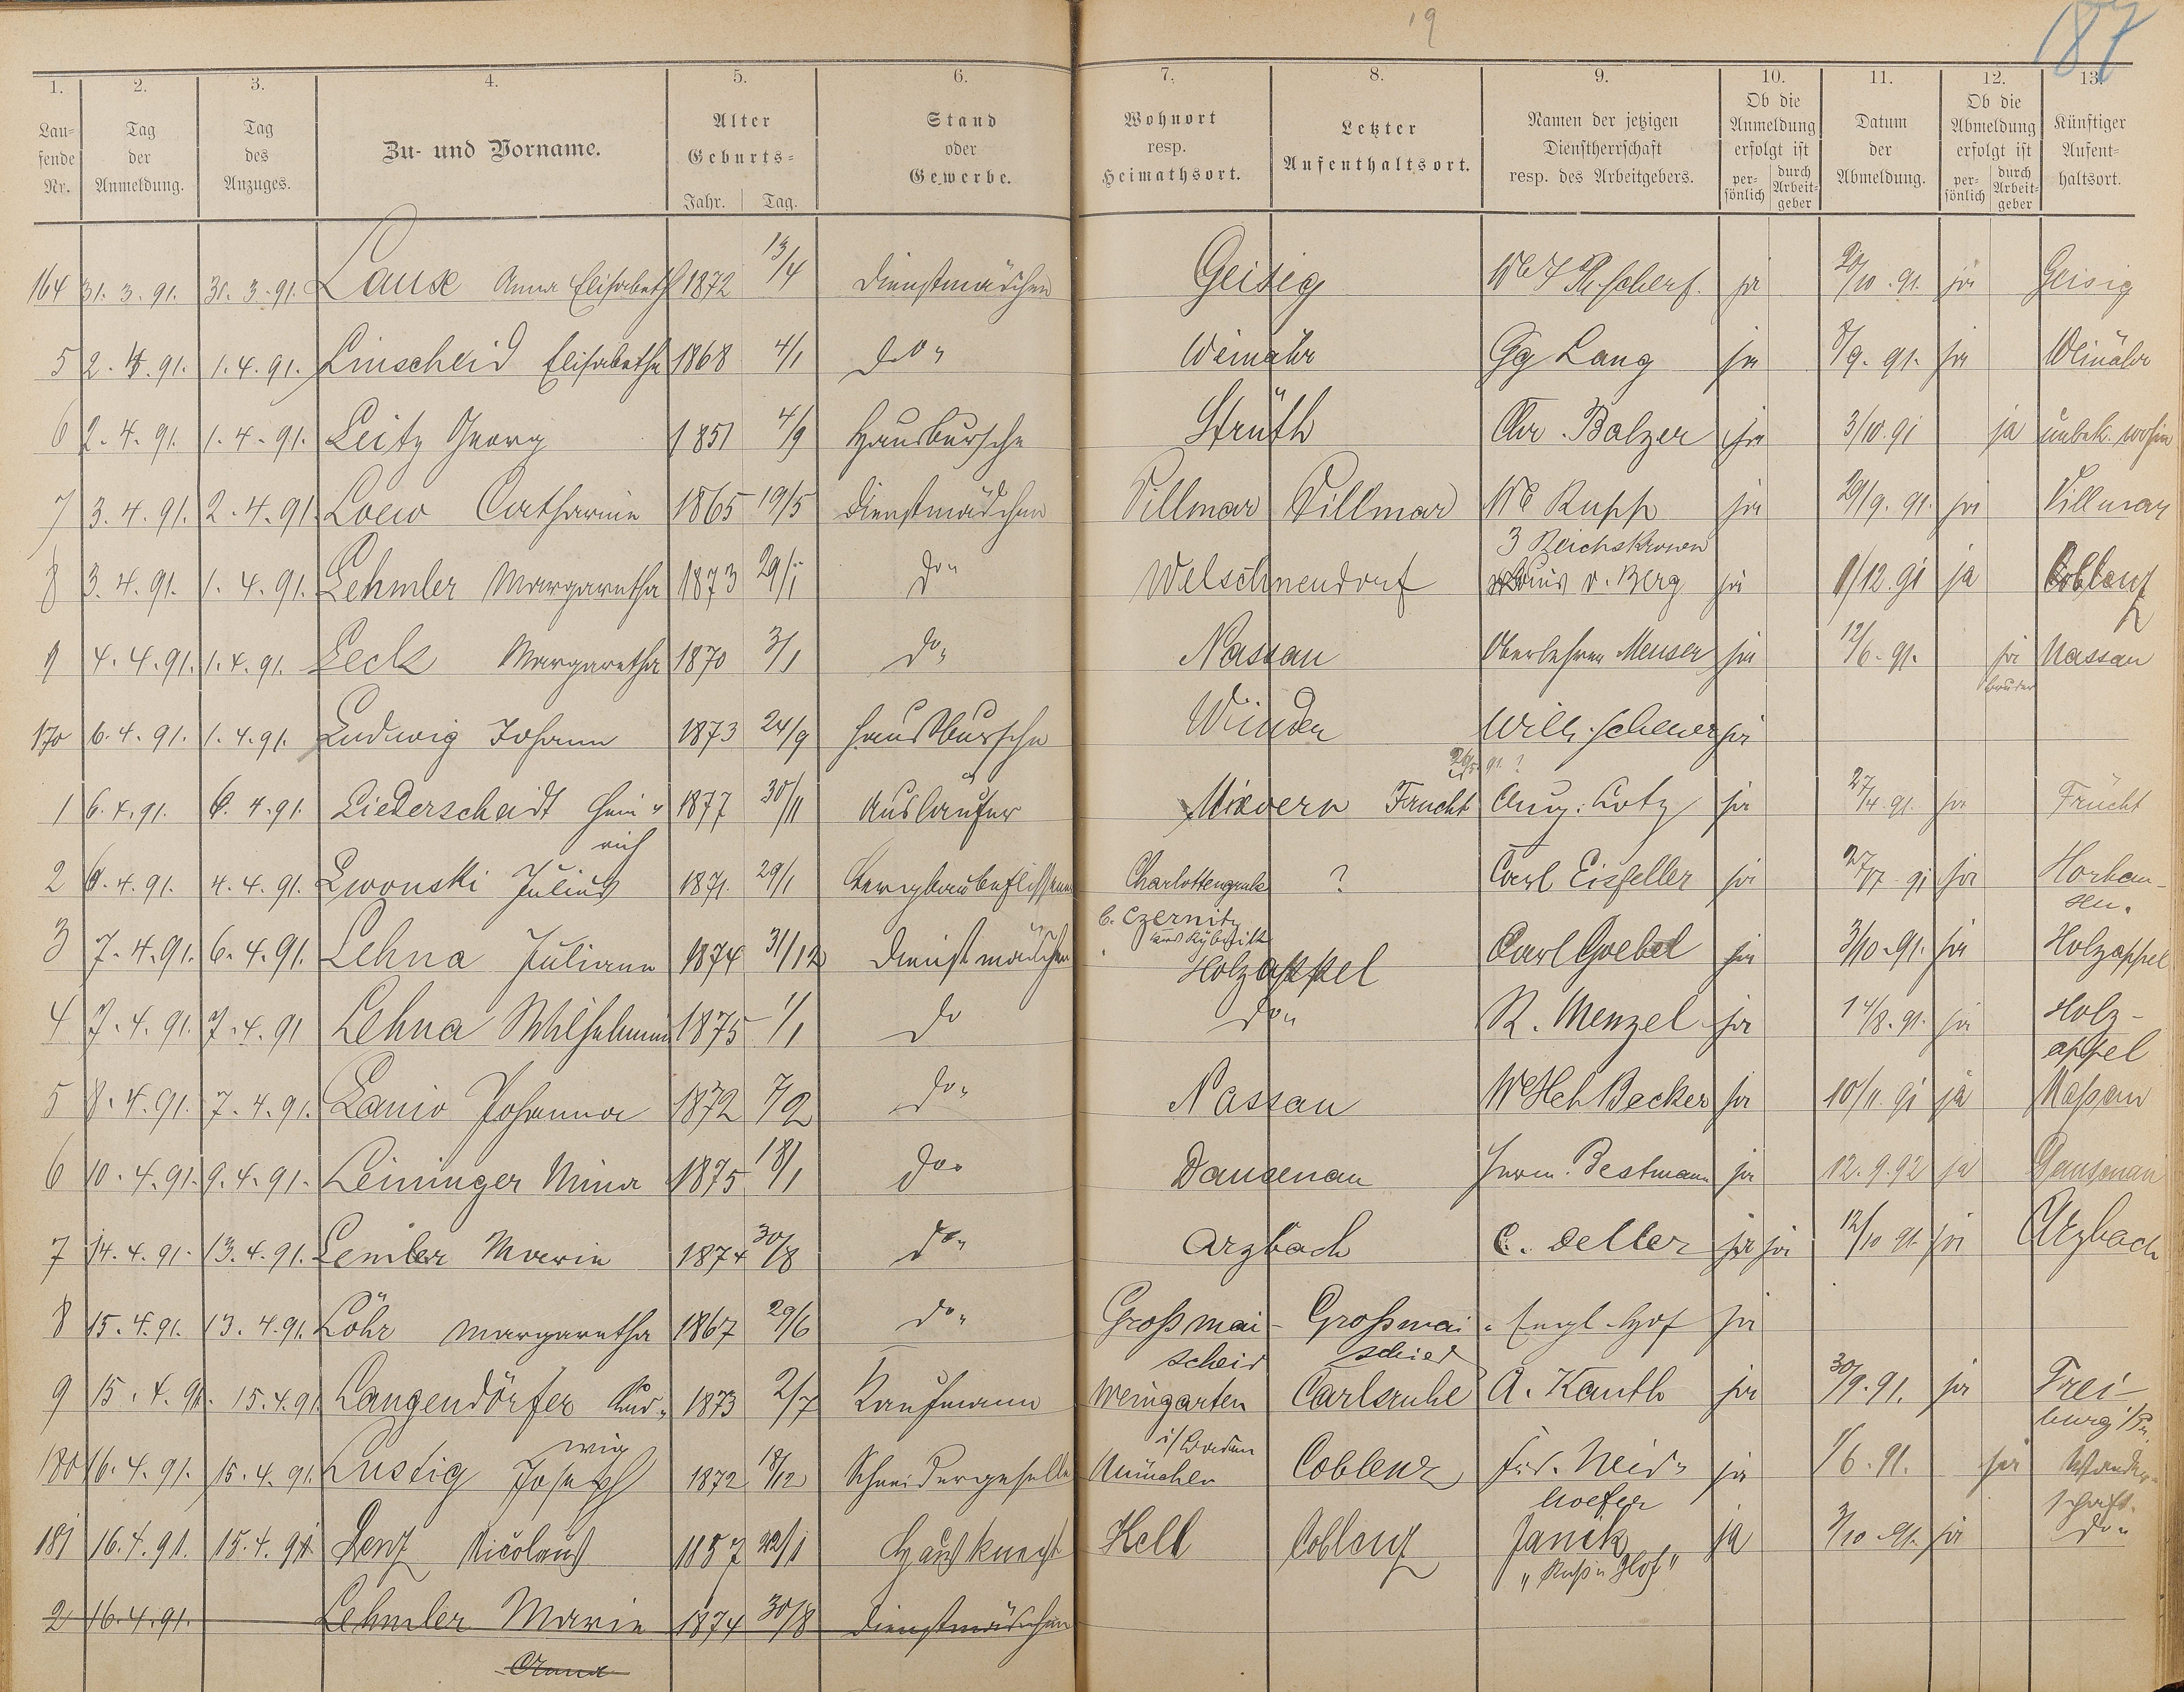 19
187
1. 2. 3. 4. 5. 6. 7. 8. 9. 10. 11. 12. 13.
Lau-
fende
Nr.
Tag
der
Anmeldung.
Tag
des
Anzuges.
Zu- und Vorname.
Alter
Geburts-
Jahr. Tag.
Stand
oder
Gewerbe.
Wohnort
resp.
Heimathsort.
Letzter
Aufenthaltsort.
Namen der jetzigen
Dienstherrschaft
resp. des Arbeitgebers.
Ob die
Anmeldung
erfolgt ist
per-
sönlich
durch
Arbeit-
geber
Datum
der
Abmeldung.
Ob die
Abmeldung
erfolgt ist
per-
sönlich
durch
Arbeit-
geber
Künftiger
Aufent-
haltsort.
164 31.3.91. 31.3.91. Laux Anna Elisabeth 1872 13/4 Dienstmädchen Geisig Scherf. ja 10.91. ja Geisig
5 2.4.91. 1.4.91. Linscheid Elisabetha 1868 4/1 do" Weinähr Gg Lang ja 8/9.91. ja Weinähr
6 2.4.91. 1.4.91. Leitz Georg 1851 4/9 Hausbursche Strüth Chr. Balzer ja 3/10.91 ja unbek. wohin
7 3.4.91. 2.4.91. Loew Catharine 1865 19/5 Dienstmädchen Villmar Villmar We Rupp ja 29/9.91. ja Villmar
3 Reichskronen
8 3.4.91. 1.4.91. Lehmler Margaretha 1873 29/1 do" Welschneudorf Louis v. Berg ja 1/12.91 ja Coblenz
9 4.4.91. 1.4.91. Leck Margaretha 1870 3/1 do" Nassau Oberlehrer Menser ja 12/6.91. ja Nassau
Bruder
170 6.4.91. 1.4.91. Ludwig Johann 1873 24/9 Hausbursche Winden Wilh. Scheuer ja
1 6.4.91. 6.4.91. Liederscheidt Hein- 1877 30/11 Auslaufer Mievern Frucht Aug. Lotz ja 27/4.91. ja Frücht
rich
2 6.4.91. 4.4.91. Lwonski Julius 1871. 29/1 Bergbaubeflissener Charlottengrube ? Carl Eisfeller ja 27/7 91 ja Horhau-
sen.
b. Czernitz
3 7.4.91. 6.4.91. Lehna Juliane 1874 31/12 Dienstmädchen Holzappel Carl Goebel ja 3/10.91. ja Holzappel
4 7.4.91. 7.4.91 Lehna Wilhelmine 1875 1/1 do do" R. Menzel ja 14/8.91. ja Holz-
appel
5 8.4.91. 7.4.91. Lanio Johanna 1872 7/2 do" Nassau We Hch Becker ja 10/11.91 ja Nassau
6 10.4.91. 9.4.91. Leininger Mina 1875 18/1 do" Dausenau Herm. Bestmann ja 12.9.92 ja Dausenau
7 14.4.91. 13.4.91. Lemler Marie 1874 30/8 do" Arzbach C. Deller ja ja 12/10 91. ja Arzbach
8 15.4.91. 13.4.91. Löhr Margaretha 1867 29/6 do" Großmai- Großmai- Engl. Hof ja
scheid schied
9 15.4.91. 15.4.91 Langendörfer Lud- 1873 2/7 Kaufmann Weingarten Carlsruhe A. Kauth ja 30/9.91. ja Frei-
wig i/Baden burg i/B.
180 16.4.91. 15.4.91. Lustig Joseph 1872 18/12 Schneidergeselle München Coblenz Frd. Neid- ja 1/6.91. ja Wander-
hoefer schaft.
181 16.4.91. 15.4.91. Lenz Nicolaus 1857 22/1 Hausknecht Kell Coblenz Janik ja 3/10.91. ja do"
"Russ. Hof"
2 16.4.91. Lehmler Marie 1874 30/8 Dienstmädchen
Anna